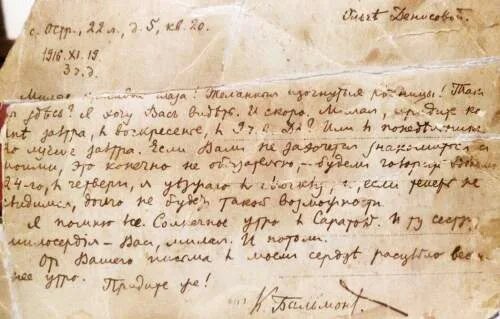 Ольге Денисовой.
с. Остр., 22 л., д. 5, кв. 20.
1916. XI. 19
3 ч. д.
глаза! Желанный изогнутые ресницы! Так
здесь? Я хочу Вас видеть. И скоро. Милая, придите ко
мне завтра, в воскресенье, в Да? Или в
лучше завтра. Если Вам не захочется знакомиться с
моими, это конечно не обязательно, – будем говорить
24-го, в четверг, я уезжаю в и, если теперь не
свидимся, долго не будет такой возможности.
Я помню все. Солнечное утро в Саратове. И ту сестру
милосердия – Вас, милая. И потом.
От Вашего письма в моем сердце расцвело
нее утро. Придите же!
К. Бальмонт.